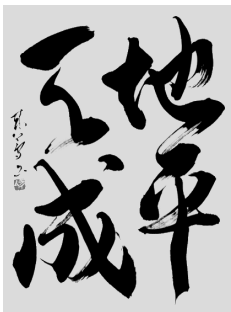 地平
天成